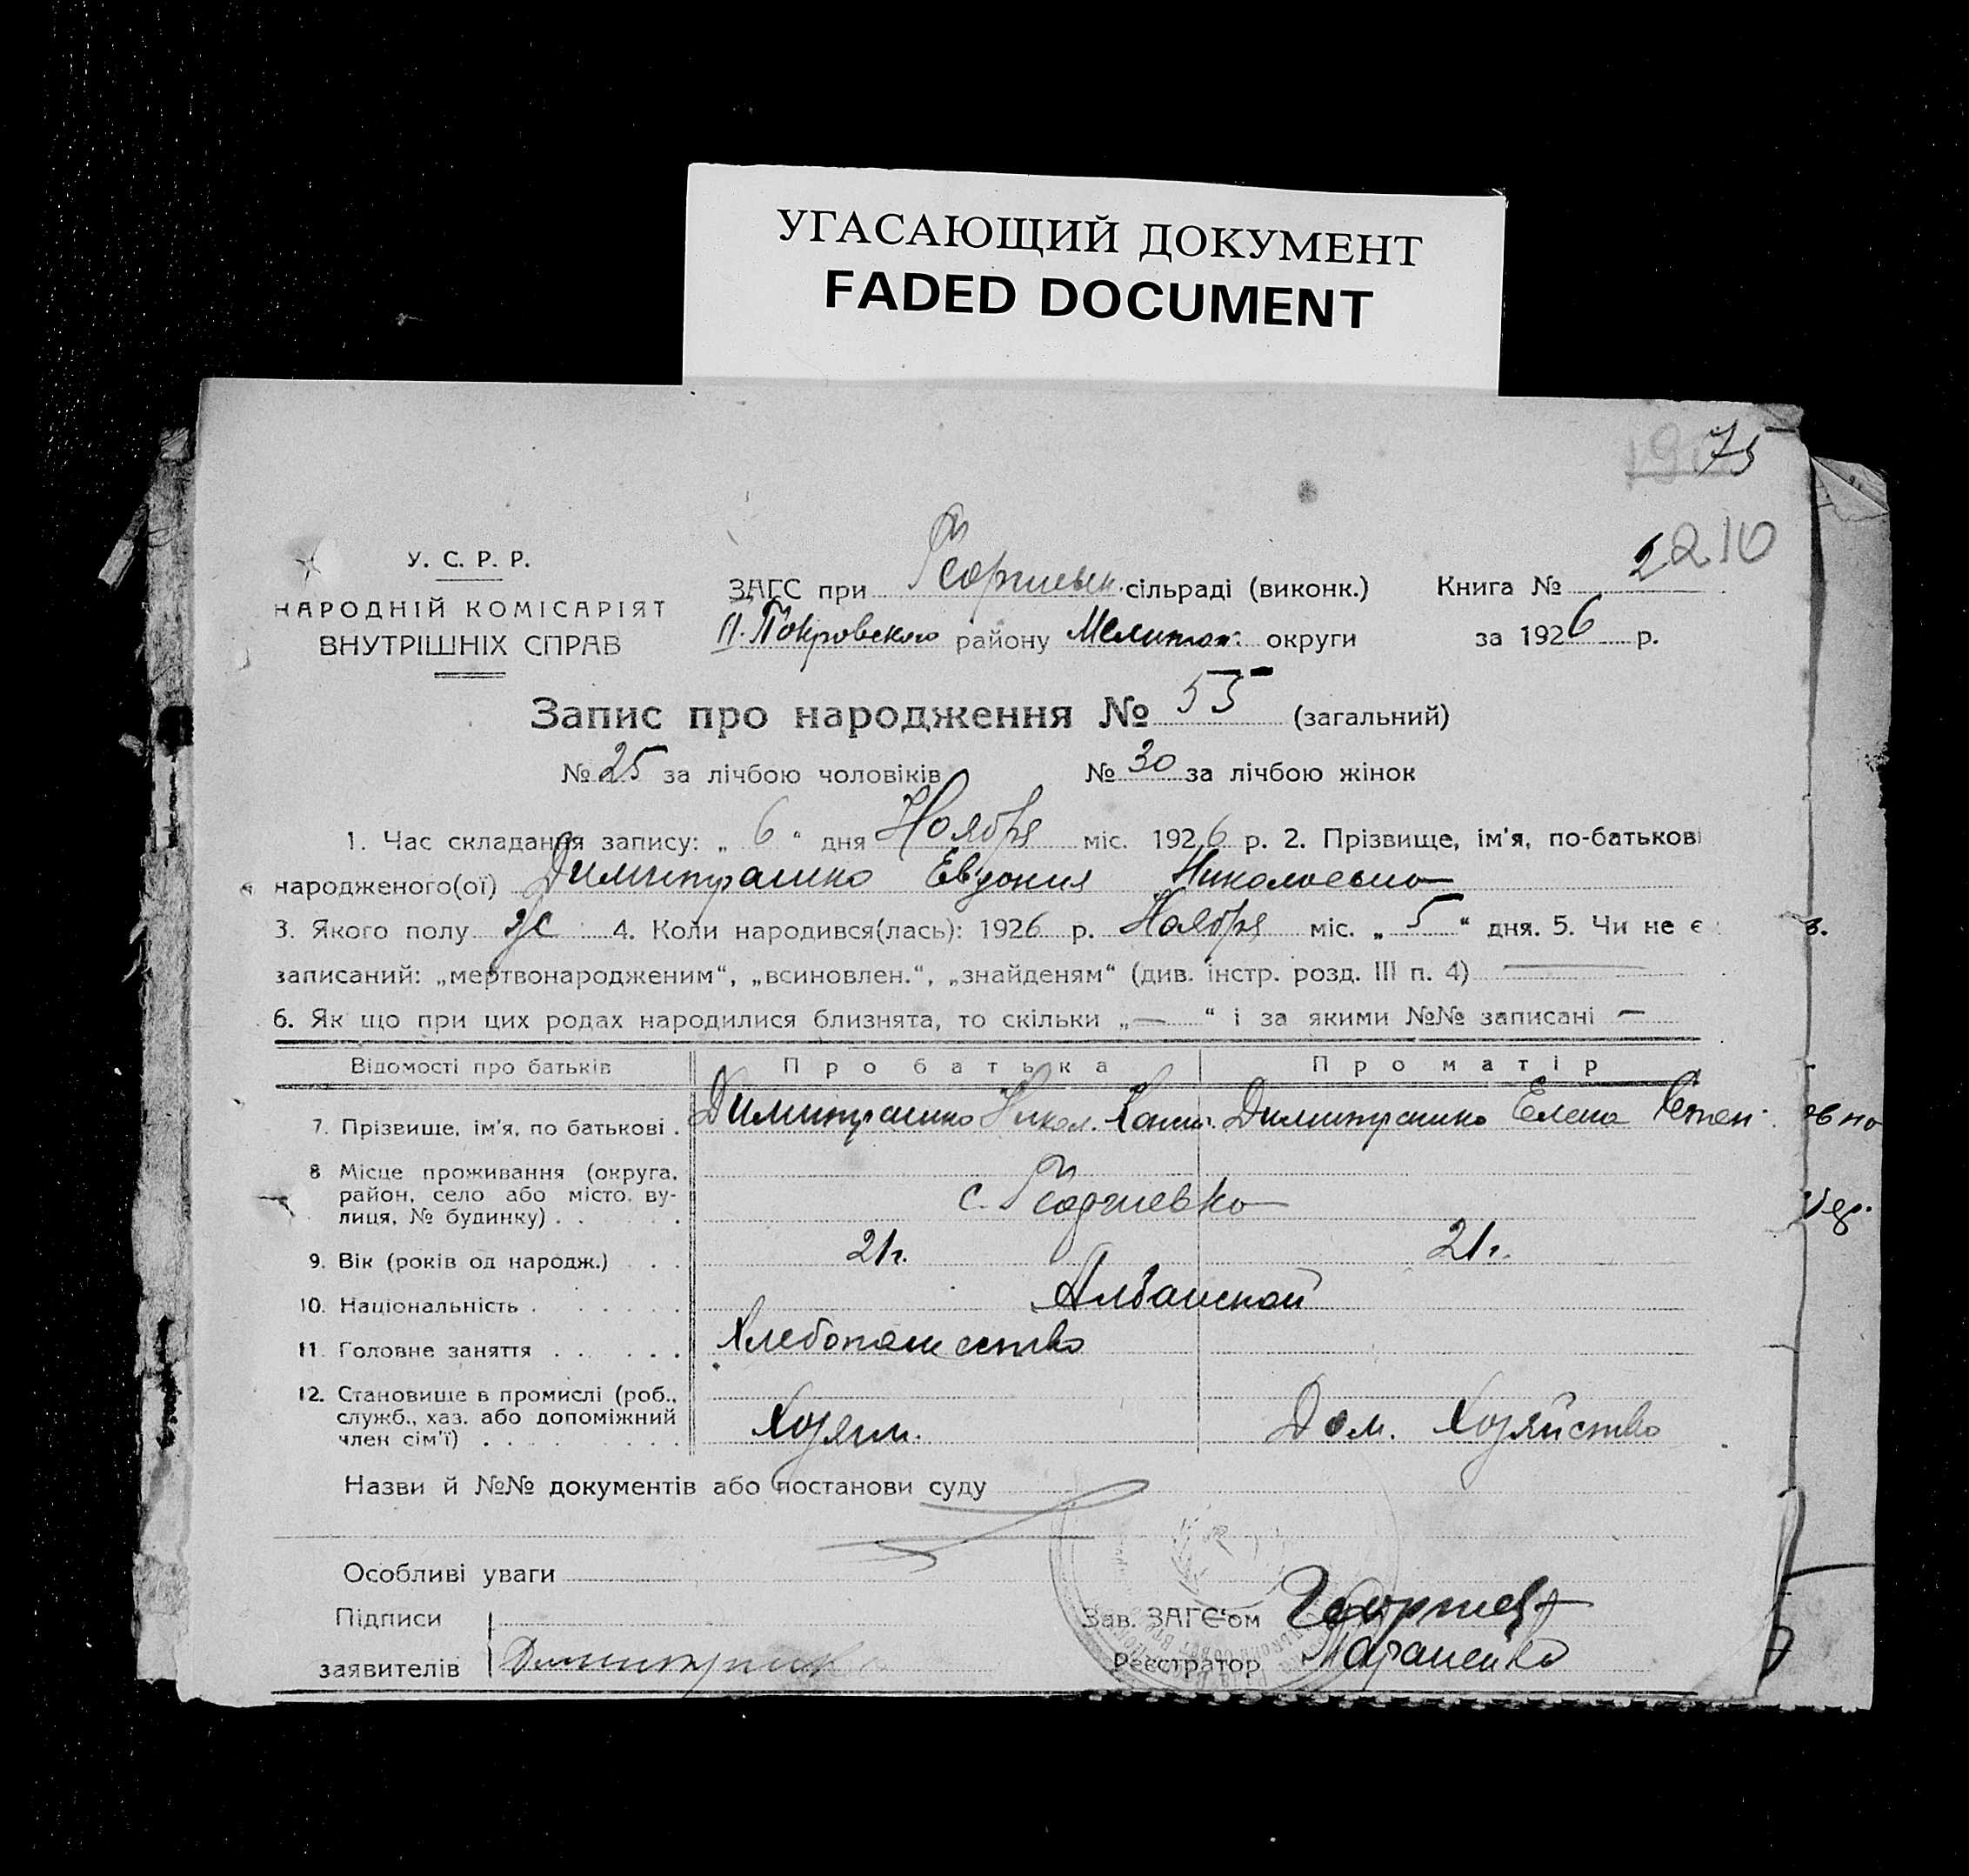 УГАСАЮЩИЙ ДОКУМЕНТ
FADED DOCUMENT
75
У. С. Р. Р.
НАРОДНІЙ КОМІСАРІЯТ
ВНУТРІШНІХ СПРАВ
ЗАГС при Георгиевк. сільраді (виконк.) Книга № 2210
П. Покровского району Мелитоп: округи за 1926 р.
Запис про народження № 55 (загальний)
№ 25 за лічбою чоловіків № 30 за лічбою жінок
1. Час складання запису: „ 6 “ дня Ноября міс. 1926 р. 2. Прізвище, ім'я, по-батькові
народженого(ої) Димитрашко Евдокия Николаевна
3. Якого полу ж 4. Коли народився(лась): 1926 р. Ноября міс. „ 5 “ дня. 5. Чи не є
записаний: „мертвонародженим“, „всиновлен.“, „знайденям“ (див. інстр. розд. III п. 4) —
6. Як що при цих родах народилися близнята, то скільки „—“ і за якими №№ записані —
Відомості про батьків Про батька Про матір
7. Прізвище, ім'я, по батькові . Димитрашко Никол. Димитрашко Елена Степ
8 Місце проживання (округа,
район, село або місто, ву-
лиця, № будинку) . . с. Георгиевка
9. Вік (років од народж.) . . . 21 г. 21 г.
10. Національність . . . . . . Албанской
11. Головне заняття . . . . . Хлебопашество
12. Становище в промислі (роб.,
служб., хаз. або допоміжний
член сім'ї) . . . . . . . Хозяин. Дом. Хозяйство
Назви й №№ документів або постанови суду
Особливі уваги
Підписи Зав. ЗАГС'ом
заявителів Реєстратор